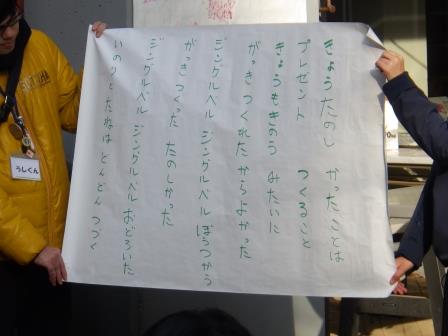 きょうたのし かったことは
プレゼント つくること
きょうもきのう みたいに
がっきつくれたからよかった
ジングルベル ジングルベル ぼうつかう
がっきつくった たのしかった
ジングルベル ジングルベル おどろいた
いのりとたねは どんどん つづく
うしくん